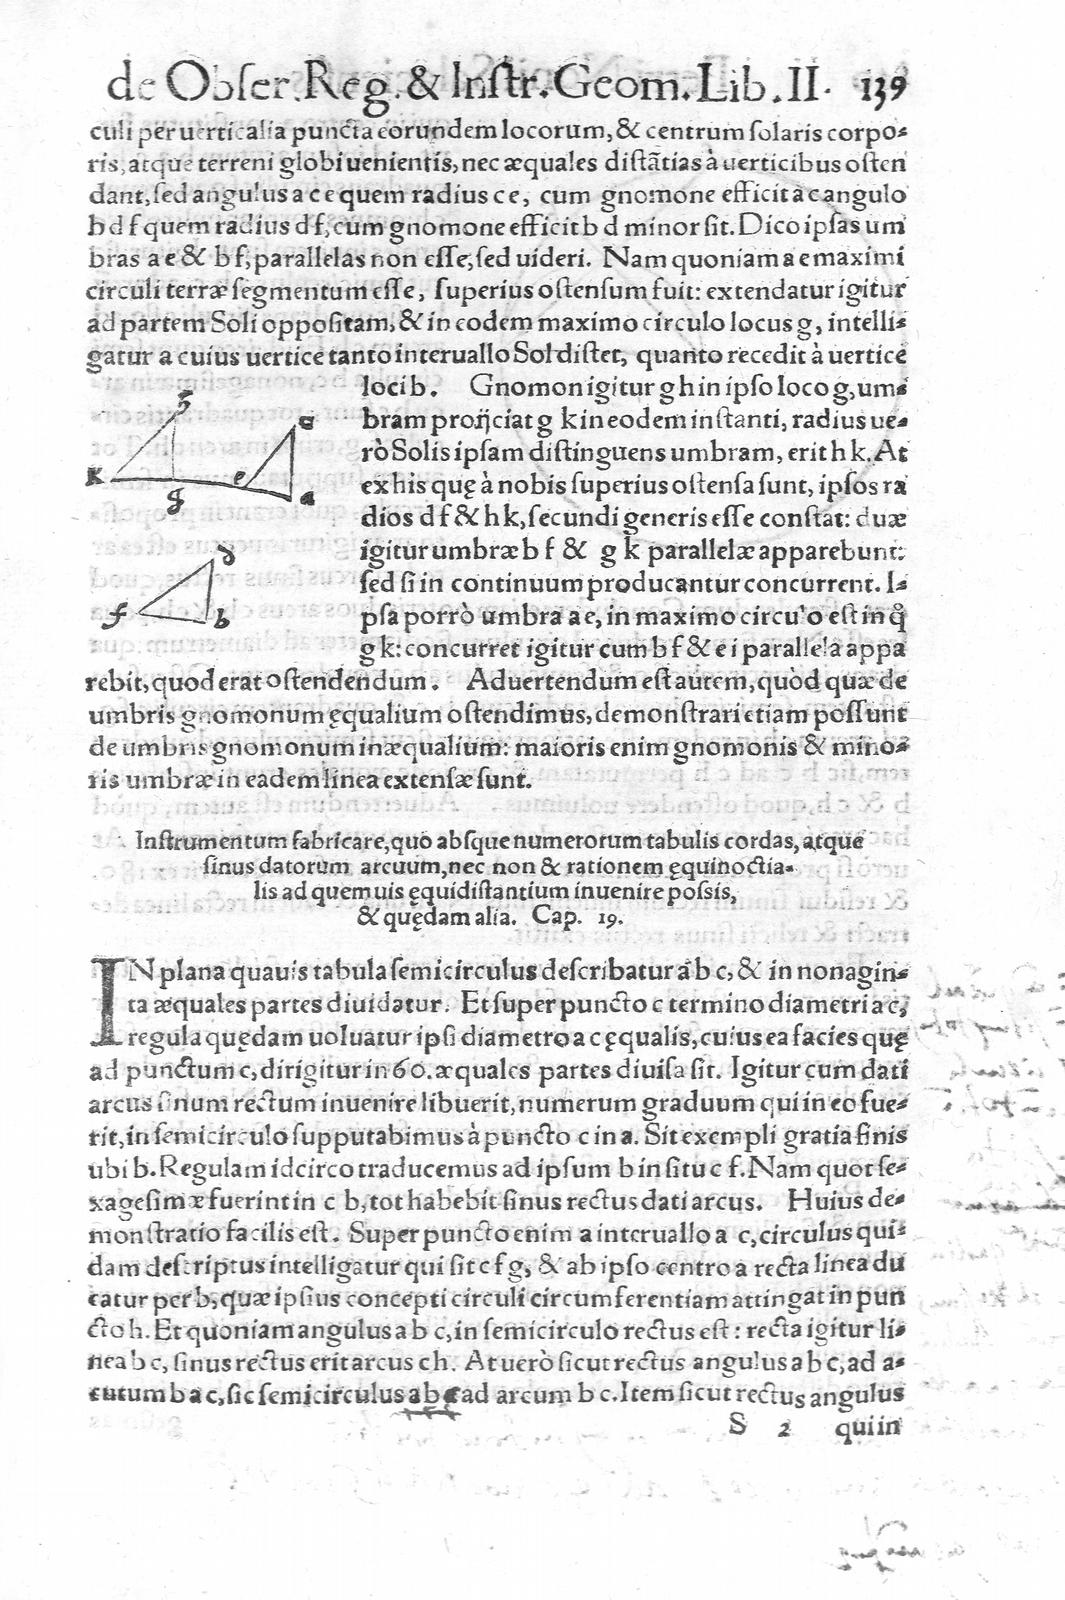 de Obser. Reg. & Instr. Geom. Lib. II. 139
culi per uerticalia puncta eorundem locorum, & centrum solaris corpo-
ris, atque terreni globi uenientis, nec æquales distātias à uerticibus osten
dant, sed angulus a c e quem radius c e, cum gnomone efficit a c angulo
b d f quem radius d f, cum gnomone efficit b d minor sit. Dico ipsas um
bras a e & b f, parallelas non esse, sed uideri. Nam quoniam a e maximi
circuli terræ segmentum esse, superius ostensum fuit: extendatur igitur
ad partem Soli oppositam, & in eodem maximo circulo locus g, intelli-
gatur a cuius uertice tanto interuallo Sol distet, quanto recedit à uertice
loci b. Gnomon igitur g h in ipso loco g, um-
bram proijciat g k in eodem instanti, radius ue-
rò Solis ipsam distinguens umbram, erit h k. At
ex his quę à nobis superius ostensa sunt, ipsos ra
dios d f & h k, secundi generis esse constat: duæ
igitur umbræ b f & g k parallelæ apparebunt:
sed si in continuum producantur concurrent. I-
psa porrò umbra a e, in maximo circulo est in q̊
g k: concurret igitur cum b f & e i parallela appa
rebit, quod erat ostendendum. Aduertendum est autem, quòd quæ de
umbris gnomonum ęqualium ostendimus, demonstrari etiam possunt
de umbris gnomonum inæqualium: maioris enim gnomonis & mino-
ris umbræ in eadem linea extensæ sunt.
K
g
e
a
f
b
d
Instrumentum fabricare, quo absque numerorum tabulis cordas, atque
sinus datorum arcuum, nec non & rationem ęquinoctia-
lis ad quemuis ęquidistantium inuenire possis,
& quędam alia. Cap. 19.
IN plana quauis tabula semicirculus describatur a b c, & in nonagin-
ta æquales partes diuidatur. Et super puncto c termino diametri a c,
regula quędam uoluatur ipsi diametro a c ęqualis, cuius ea facies quę
ad punctum c, dirigitur in 60. æquales partes diuisa sit. Igitur cum dati
arcus sinum rectum inuenire libuerit, numerum graduum qui in eo fue-
rit, in semicirculo supputabimus à puncto c in a. Sit exempli gratia finis
ubi b. Regulam idcirco traducemus ad ipsum b in situ c f. Nam quot se-
xagesimæ fuerint in c b, tot habebit sinus rectus dati arcus. Huius de-
monstratio facilis est. Super puncto enim a interuallo a c, circulus qui-
dam descriptus intelligatur qui sit c f g, & ab ipso centro a recta linea du
catur per b, quæ ipsius concepti circuli circumferentiam attingat in pun
cto h. Et quoniam angulus a b c, in semicirculo rectus est: recta igitur li-
nea b c, sinus rectus erit arcus c h. At uerò sicut rectus angulus a b c, ad a-
cutum b a c, sic semicirculus a b c ad arcum b c. Item sicut rectus angulus
S 2 qui in